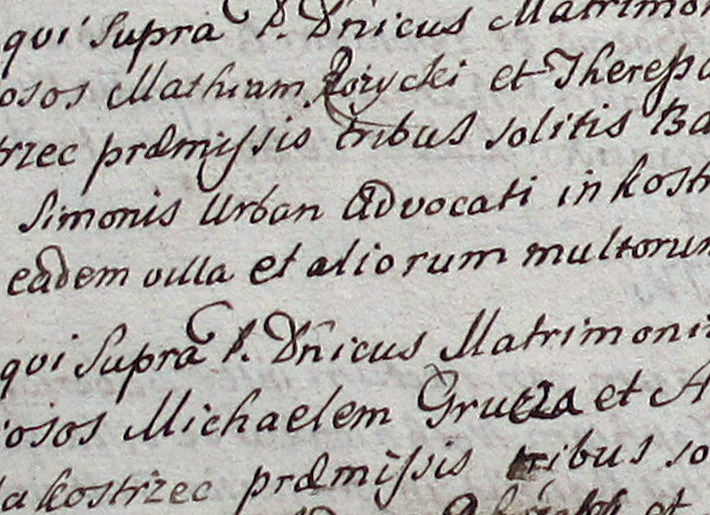 qui Supra P. Dñicus Matrimon
osos Mathiam Rożycki et Theressa
trzec præmissis tribus solitis Ba
Simonis Urban Advocati in Kostr
eadem villa et aliorum multorum
qui Supra P. Dñicus Matrimoni
osos Michaelem Gruzza et A
la Kostrzec præmissis tribus so
et